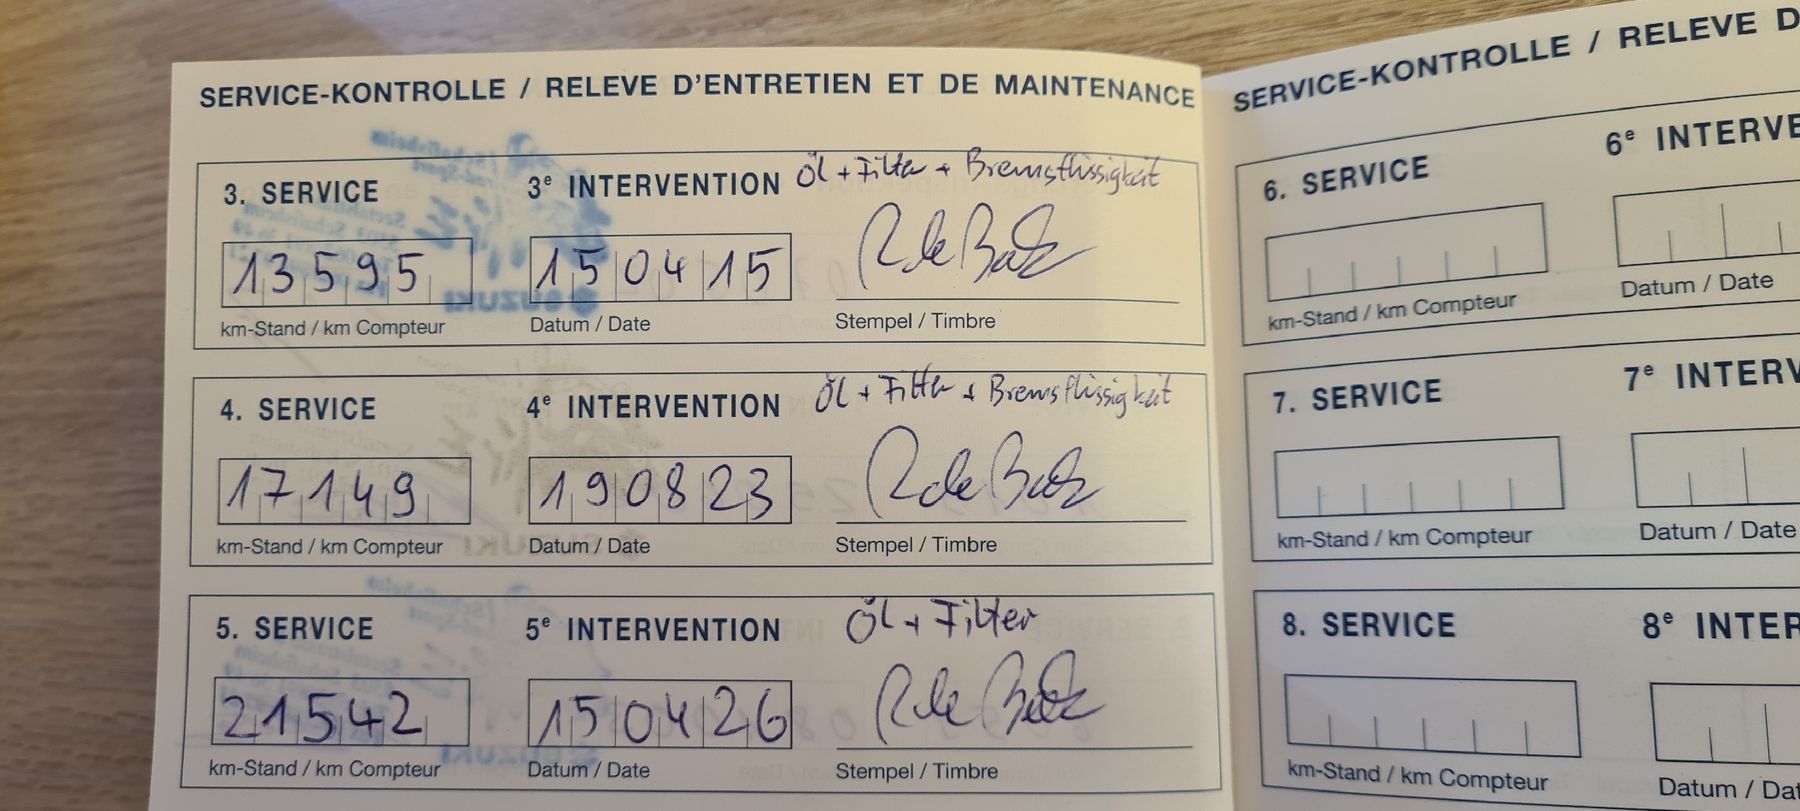 SERVICE-KONTROLLE / RELEVE D'ENTRETIEN ET DE MAINTENANCE
3. SERVICE
3e INTERVENTION
Öl + Filter + Bremsflüssigkeit
13595
150415
km-Stand / km Compteur
Datum / Date
Stempel / Timbre
4. SERVICE
4e INTERVENTION
Öl + Filter + Bremsflüssigkeit
17149
190823
km-Stand / km Compteur
Datum / Date
Stempel / Timbre
5. SERVICE
5e INTERVENTION
Öl + Filter
21542
150426
km-Stand / km Compteur
Datum / Date
Stempel / Timbre
SUZUKI
SERVICE-KONTROLLE / RELEVE D
6. SERVICE
6e INTERVE
km-Stand / km Compteur
Datum / Date
7. SERVICE
7e INTERV
km-Stand / km Compteur
Datum / Date
8. SERVICE
8e INTER
km-Stand / km Compteur
Datum / Dat